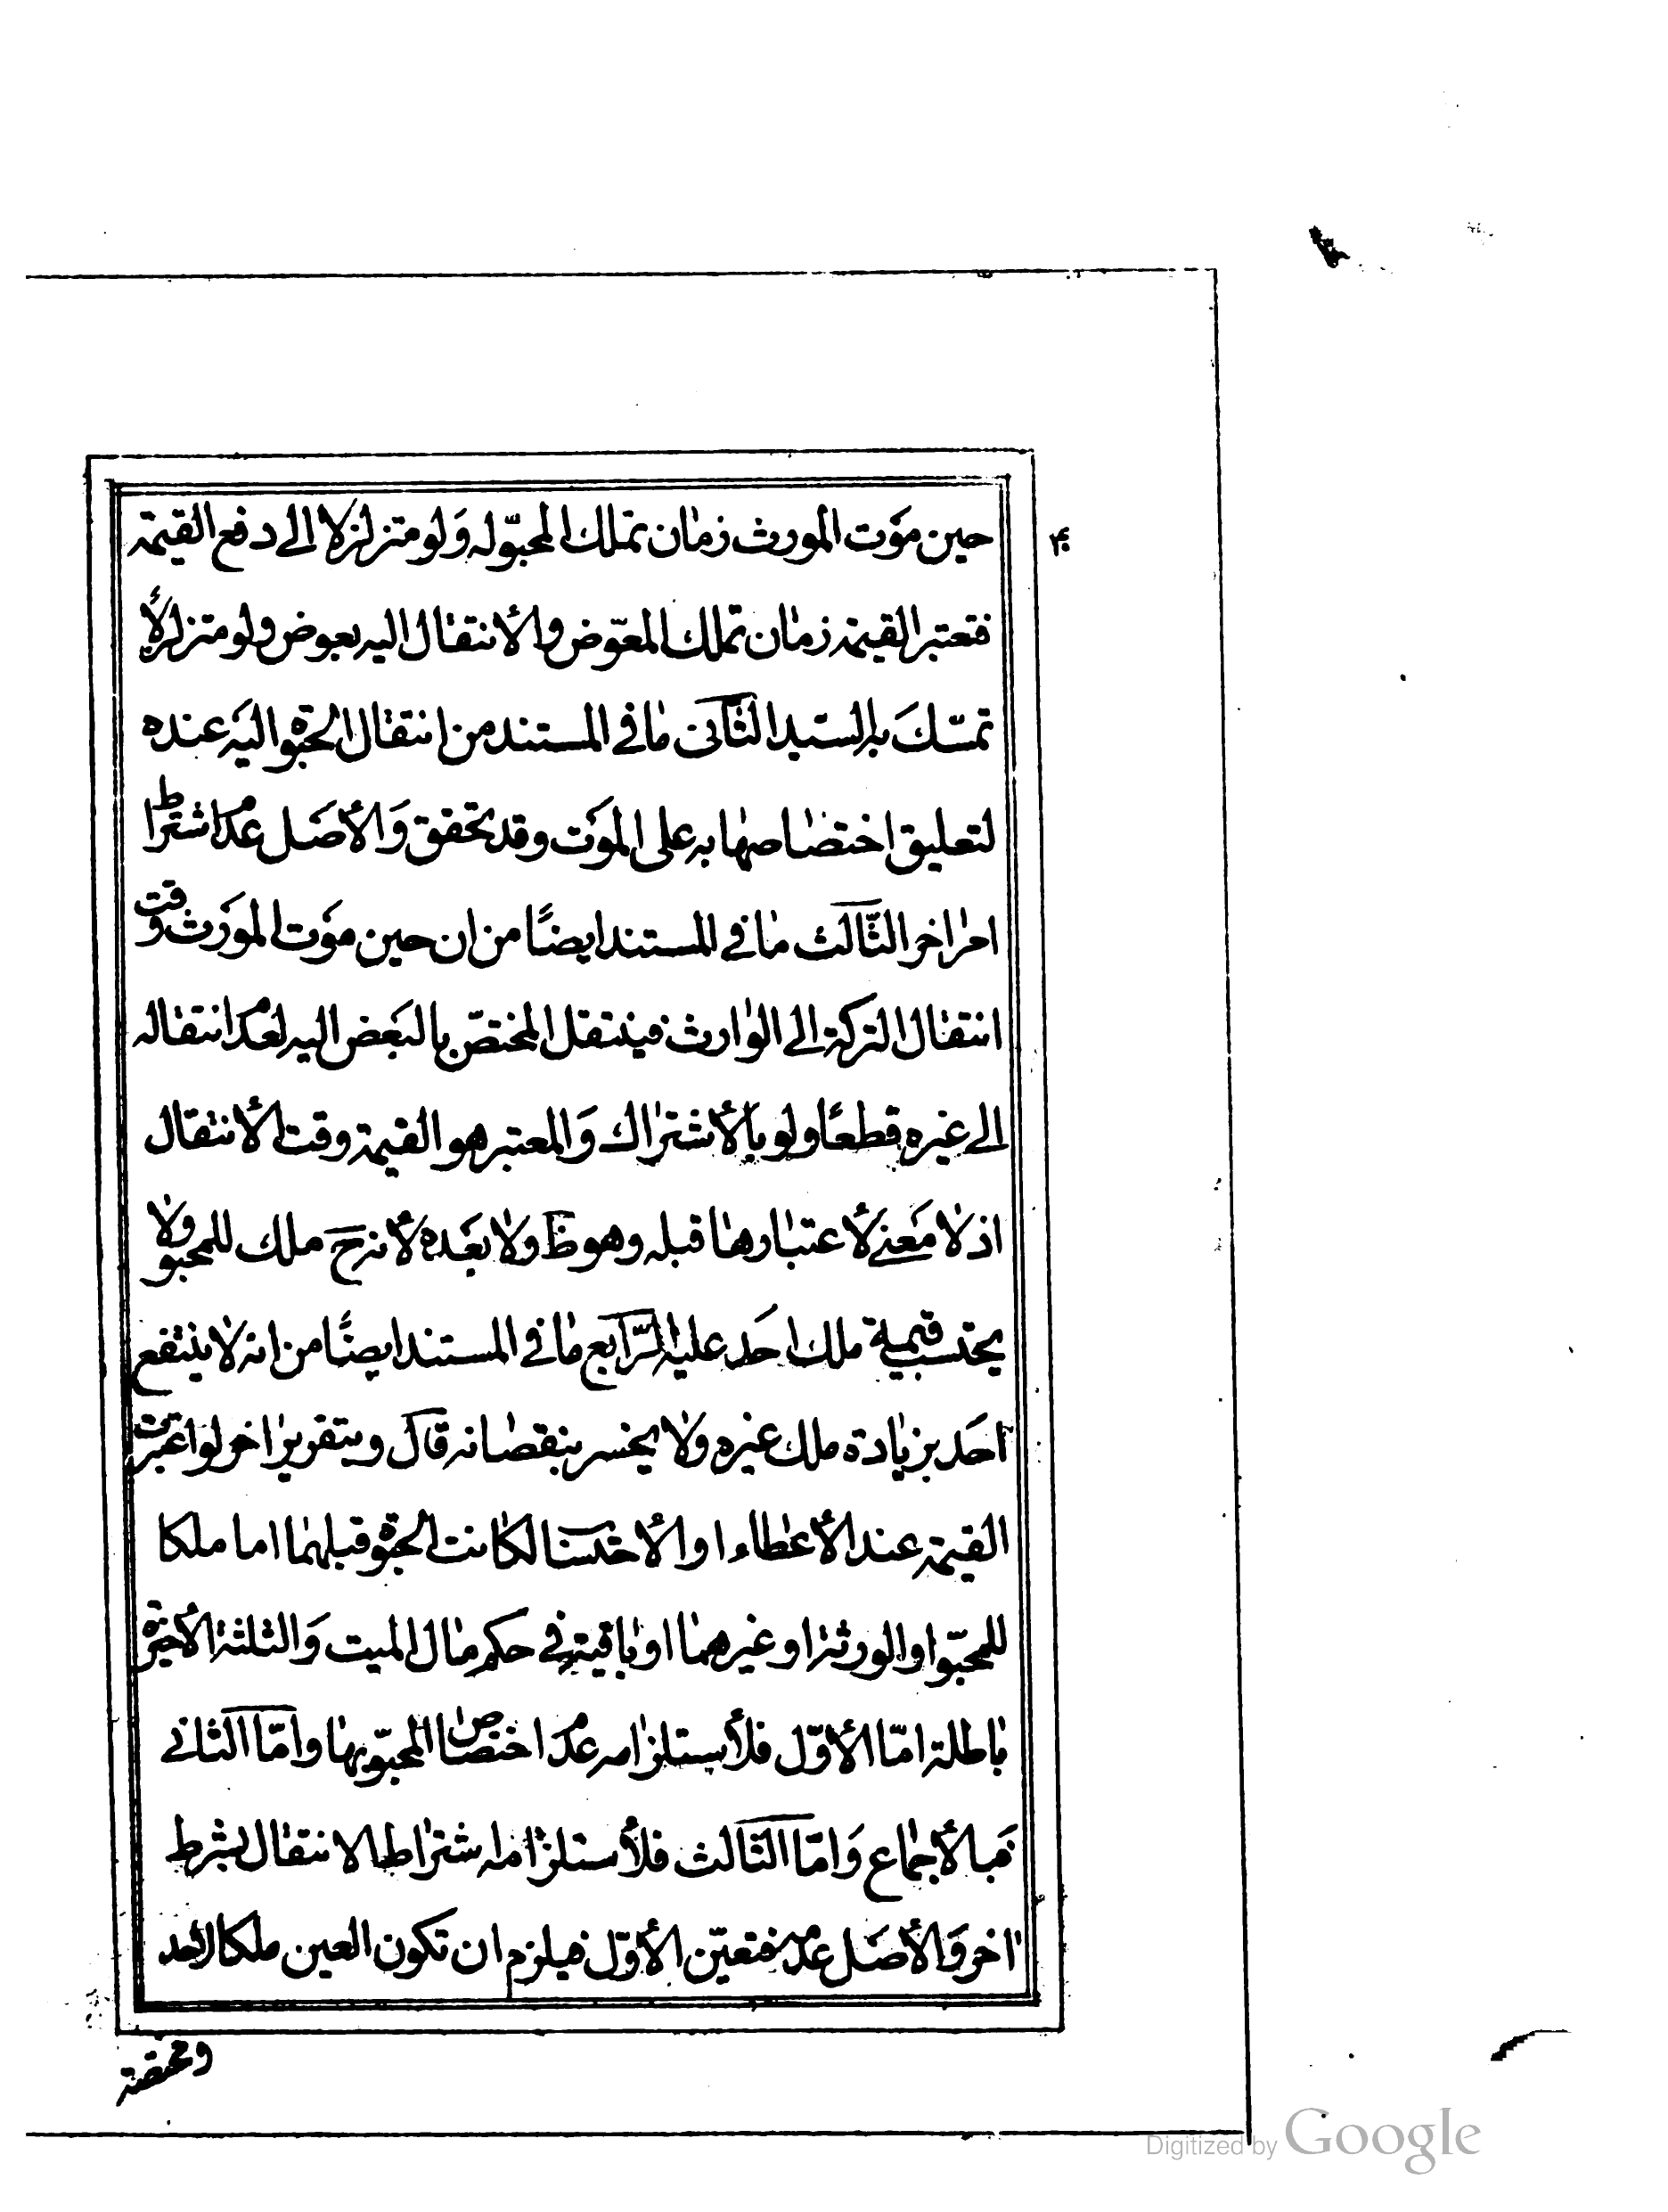 حين موَت المورث زمان تملك المحبوّ له وَلو متزلزلا الى دفع القيمة
فتعتبر القيمة زمان تملك المعوّض والأنتقال اليه بعوض ولو متزلزلًا
تمسّكَ به السّيد الثانى ما في المستند من انتقال الحبوة اليَه عنده
لتعليق اختصاصها به على الموَت وقد تحقق وَالأصَل عدم اشتراط
امر اخر الثّالث ما في المستند ايضًا من ان حين موَت الموَرث وقت
انتقال التركة الى الوارث فينتقل المختصّ بالبَعض اليه لعدم انتقاله
الى غيره قطعًا ولو بالأشتراك وَالمعتبر هو القيمة وقت الأنتقال
اذ لا مَعنى لأعتبارها قبله وهو ظ ولا بعَده لأنه ح ملك للمحبو ولا
يحتسب قيمة ملك احَد عليه الرّابع ما في المستند ايضًا من انه لا ينتفع
احَد بزيادة ملك غيره ولا يخسر بنقصانه قال وبتقرير اخر لو اعتبرت
القيمة عند الأعطاء او الأحتساب لكانت الحبوة قبلهما اما ملكا
للمحبوّ او الورثة او غيرهما او باقية في حكم مال الميت وَالثلثة الأخيرة
باطلة امّا الأوّل فلأستلزامه عدم اختصاص المحبوّ بها وامّا الثاني
فبالأجماع وَامّا الثالث فلأستلزامه اشتراط الانتقال بشرط
اخر وَالأصَل عدمه فتعيّن الأوّل فيلزم ان تكون العين ملكا لاحد
۴۰
Digitized by Google